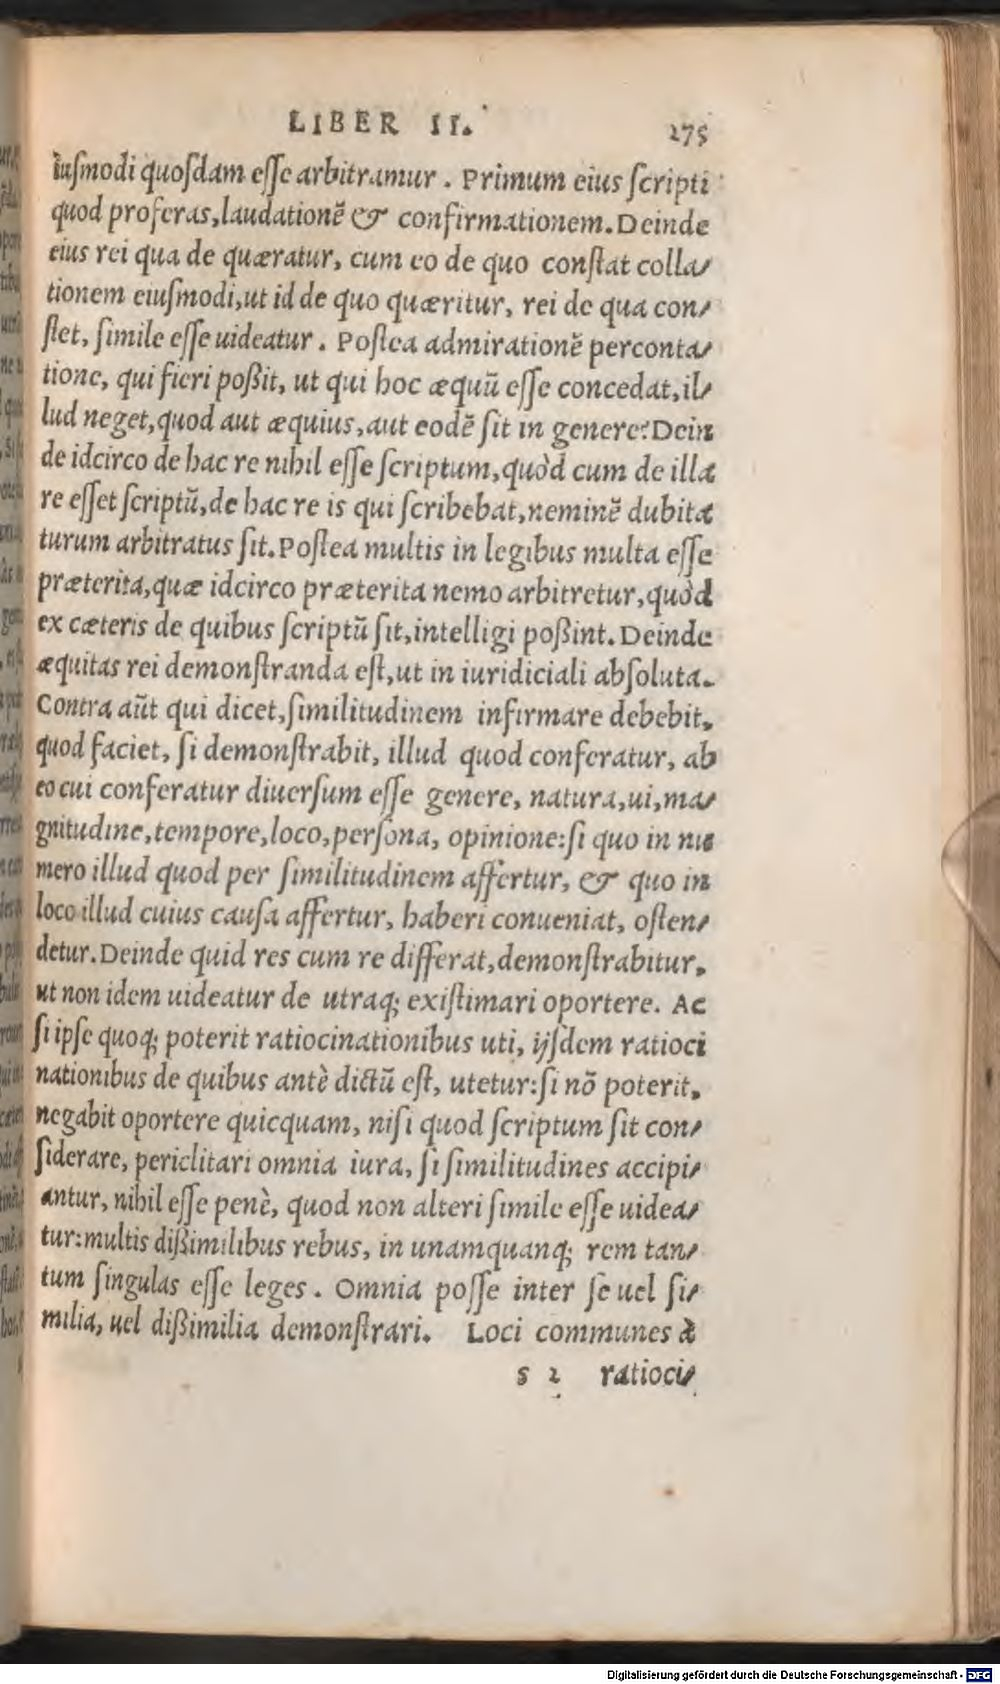 LIBER II. 275
iusmodi quosdam esse arbitramur. Primum eius scripti
quod proferas, laudationẽ & confirmationem. Deinde
eius rei qua de quæratur, cum eo de quo constat colla/
tionem eiusmodi, ut id de quo quæritur, rei de qua con/
stet, simile esse uideatur. Postea admirationẽ perconta/
tione, qui fieri poßit, ut qui hoc æquũ esse concedat, il/
lud neget, quod aut æquius, aut eodẽ sit in genere? Dein
de idcirco de hac re nihil esse scriptum, quòd cum de illa
re esset scriptũ, de hac re is qui scribebat, neminẽ dubita
turum arbitratus sit. Postea multis in legibus multa esse
præterita, quæ idcirco præterita nemo arbitretur, quòd
ex cæteris de quibus scriptũ sit, intelligi poßint. Deinde
æquitas rei demonstranda est, ut in iuridiciali absoluta.
Contra aũt qui dicet, similitudinem infirmare debebit,
quod faciet, si demonstrabit, illud quod conferatur, ab
eo cui conferatur diuersum esse genere, natura, ui, ma/
gnitudine, tempore, loco, persona, opinione: si quo in nu
mero illud quod per similitudinem affertur, & quo in
loco illud cuius causa affertur, haberi conueniat, osten/
detur. Deinde quid res cum re differat, demonstrabitur,
ut non idem uideatur de utraq; existimari oportere. Ac
si ipse quoq; poterit ratiocinationibus uti, ijsdem ratioci
nationibus de quibus antè dictũ est, utetur: si nõ poterit,
negabit oportere quicquam, nisi quod scriptum sit con/
siderare, periclitari omnia iura, si similitudines accipi/
antur, nihil esse penè, quod non alteri simile esse uidea/
tur: multis dißimilibus rebus, in unamquanq; rem tan/
tum singulas esse leges. Omnia posse inter se uel si/
milia, uel dißimilia demonstrari. Loci communes à
s 2 ratioci/
Digitalisierung gefördert durch die Deutsche Forschungsgemeinschaft - DFG